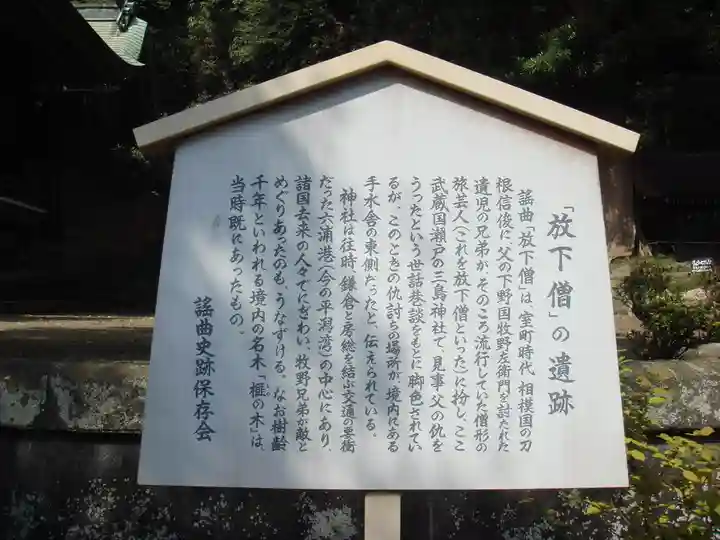 「放下僧」の遺跡
謡曲「放下僧」は、室町時代、相模国の刀
根信俊に、父の下野国牧野左衛門を討たれた
遺児の兄弟が、そのころ流行していた僧形の
旅芸人(これを放下僧といった)に扮し、ここ
武蔵国瀬戸の三島神社で、見事、父の仇を
うったという世話巷談をもとに脚色されてい
るが、このときの仇討ちの場所が、境内にある
手水舎の東側だったと、伝えられている。
神社は往時、鎌倉と房総を結ぶ交通の要衝
だった六浦港(今の平潟湾)の中心にあり、
諸国去来の人々でにぎわい、牧野兄弟が敵と
めぐりあったのも、うなずける。なお樹齢
千年といわれる境内の名木「榧の木」は、
当時既にあったもの。
謡曲史跡保存会